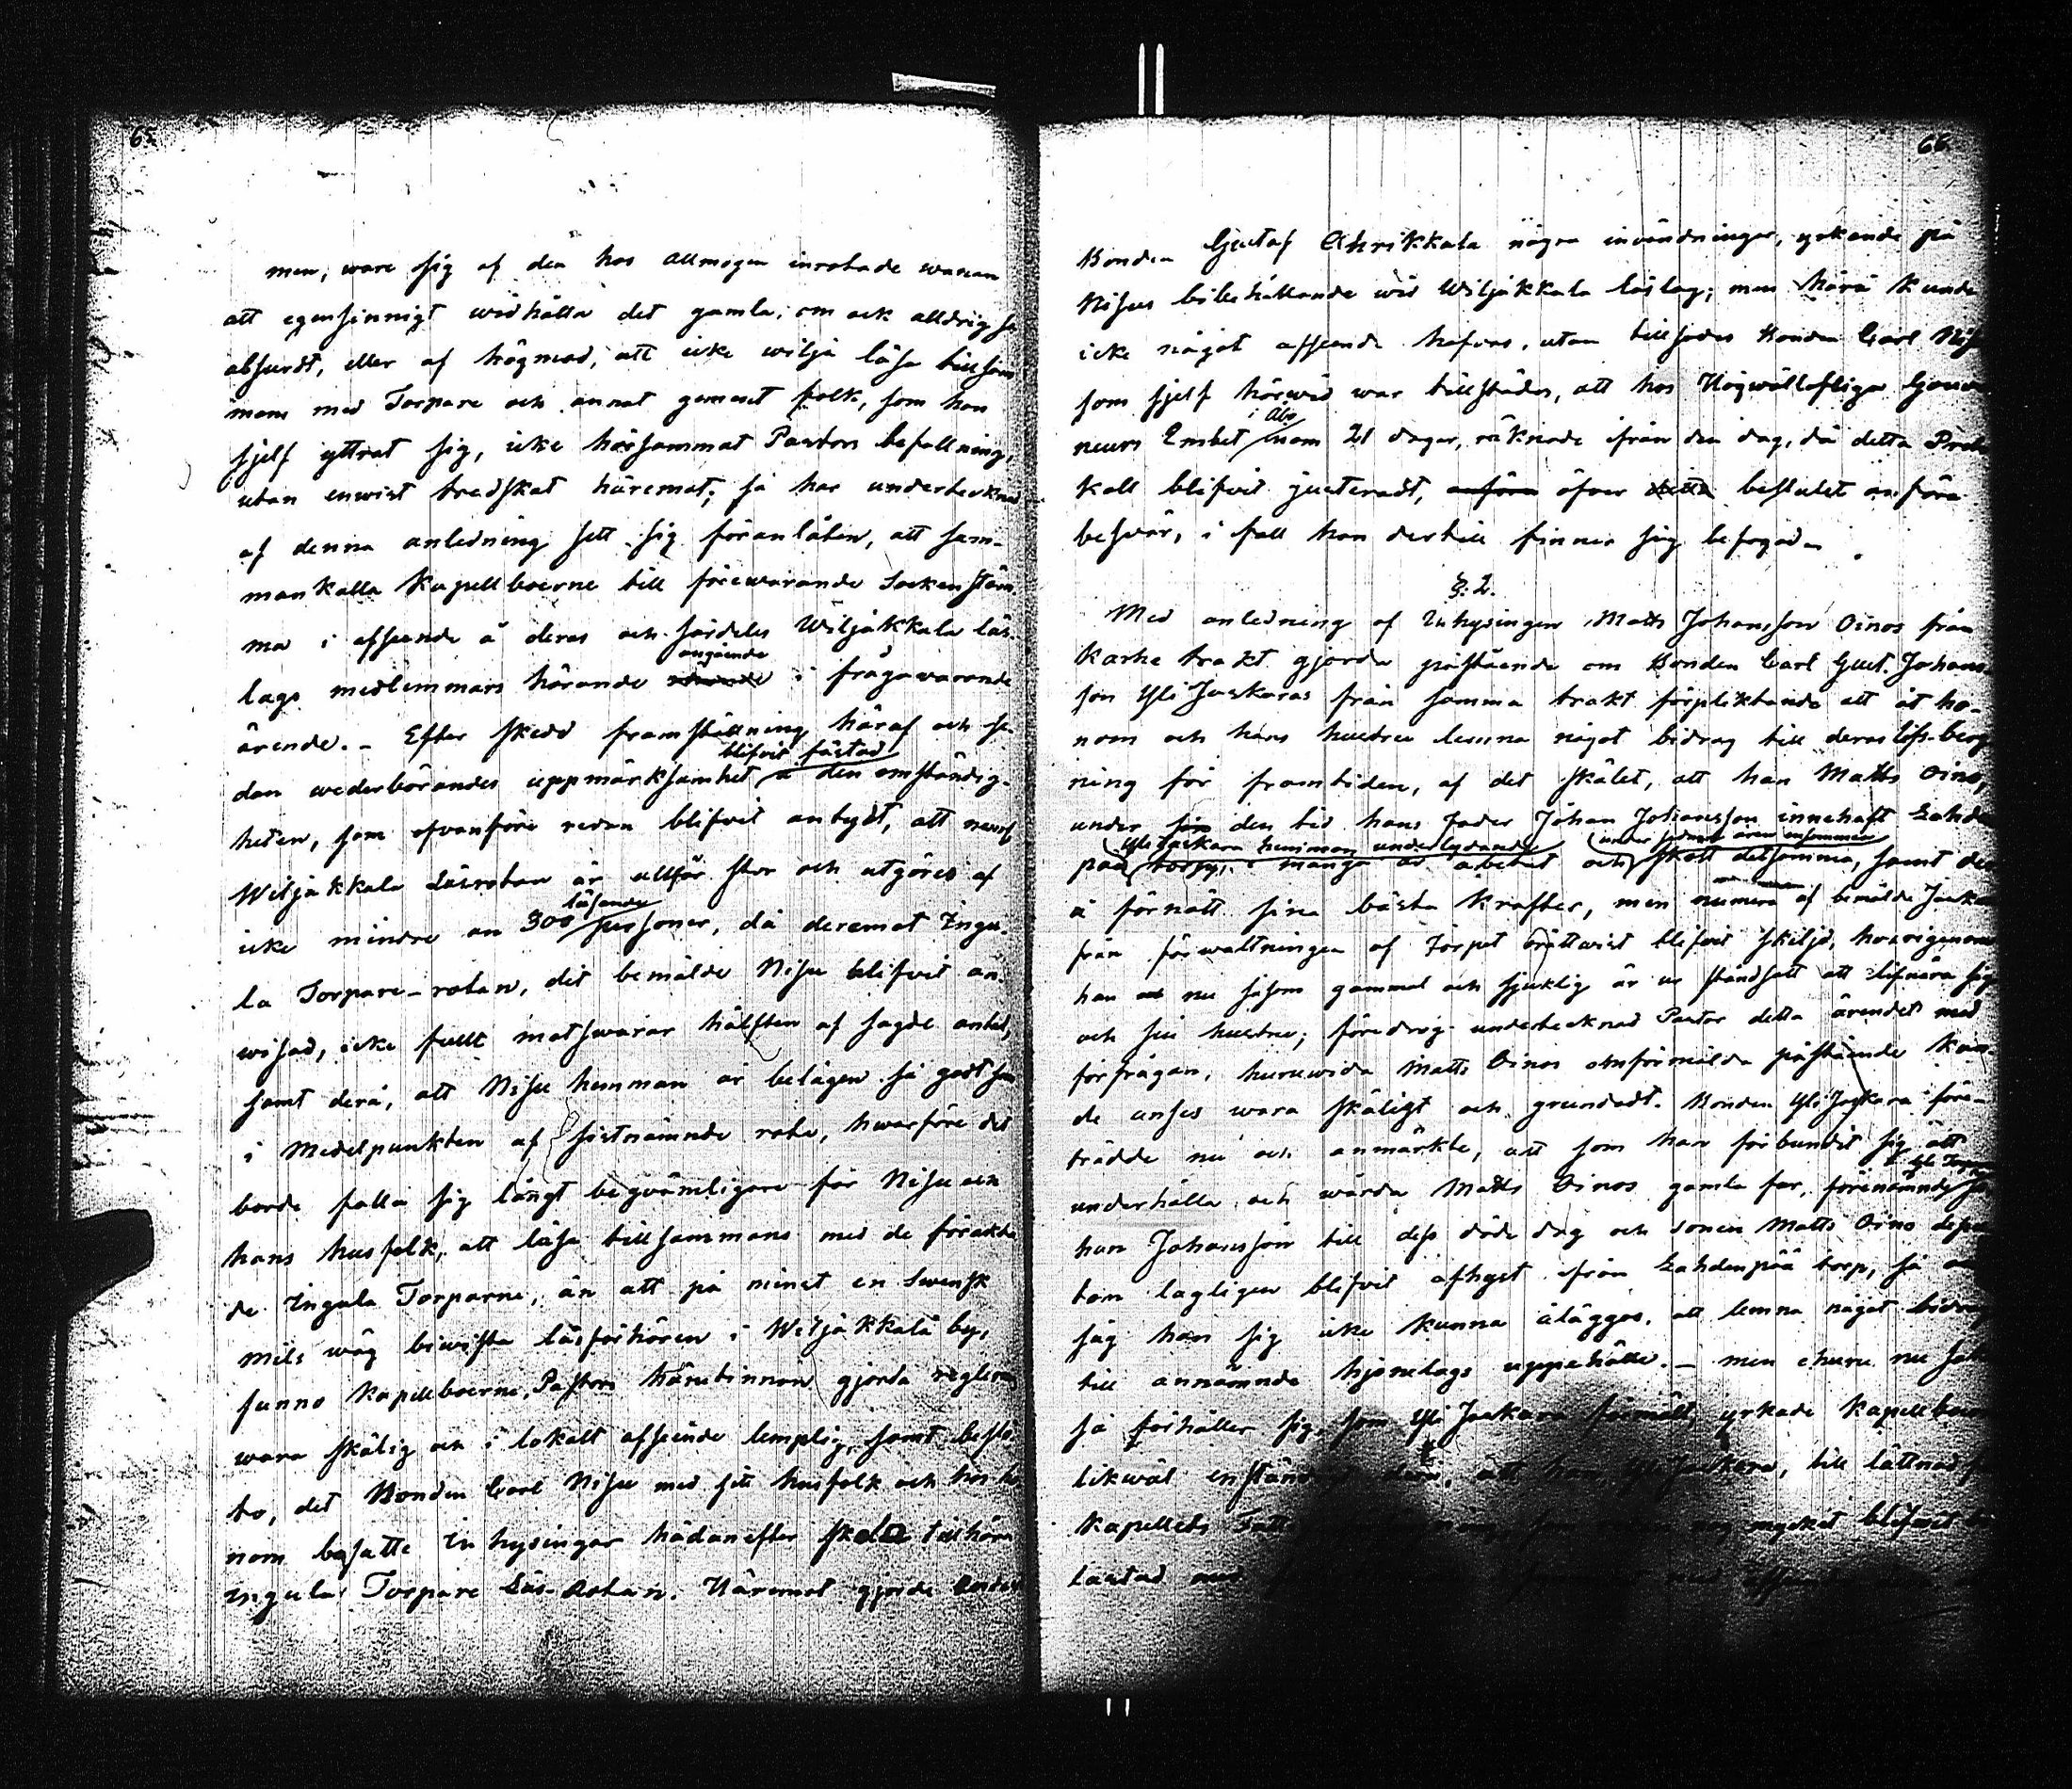 65
men, ware sig af den hos Allmogen inrotade wanan
att egensinnigt widhålla det gamla, om ock alldrig så
absurdt, eller af högmod, att icke wilja läsa tillsam
mans med Torpare och annat gement folk, som han
sjelf yttrat sig, icke hörsammat Pastors befallning,
utan enwist tredskat häremot; så har undertecknad
af denna anledning sett sig föranlåten, att sam-
mankalla Kapellboerne till förewarande Sockenstäm
ma i afseende å deras och särdeles Wiljakkala läs-
lags medlemmars hörande angående i frågawarande
ärende. - Efter skedd framställning häraf och se-
dan wederbörandes uppmärksamhet blifvit fästad å den omständig-
heten, som ofvanföre redan blifvit antydt, att
Wiljakkala Läsrotan är alltför stor och utgöres af
icke mindre än 300 läsande personer, då deremot Ingu-
la Torpare-rotan, dit bemälde Nisu blifvit an-
wisad, icke fullt motswarar hälften af sagde antal,
samt derå, att Nisu hemman är belägen så godt som
i Medelpunkten af sistnämnde rote, hwarföre det
borde falla sig långt beqvämligare för Nisu och
hans husfolk, att läsa tillsammans med de förakta
de Ingula Torparne, än att på minst en Swensk
Mils wäg biwista läsförhören i Wiljakkala by,
funno Kapellboerne, Pastors härutinnan gjorda reglering
wara skälig och i lokalt afseende lemplig, samt beslö
to, det Bonden Carl Nisu med sitt husfolk och hos ho
nom besatte Inhysingar hädanefter skola tillhöra
Ingula Torpare Läs-Rotan. Häremot gjorde
66
Bonden Gustaf Ahrikkala några invändningar, yrkande på
Nisus bibehållande wid Wiljakkala läslag; men härå kunde
icke något afseende hafvas, utan tillsades Bonden Carl Nisu
som sjelf härwid war tillstädes, att hos Högwällofliga Gouver
neurs Embet i Åbo inom 21 dagar, räknade ifrån den dag, då detta Proto
koll blifvit justeradt, anföra öfver detta beslutet anföra
besvär, i fall han dertill finner sig befogad.
§. 2.
Med anledning af Inhysingen Matts Johansson Oinos från
Karhe trakt gjorda påstående om Bonden Carl Gust. Johans
son Yli Jaskaras från samma trakt förpliktande att åt ho-
nom och hans hustru lemna något bidrag till deras lifs-berg
ning för framtiden, af det skälet, att han Matts Oino,
under den tid hans Fader Johan Johansson innehaft Lahden
pää Yli Jaskara hemman underlydande torp, i många år arbetat och under sednare åren ensammen skött detsamma, samt der
å förnött sina bästa krafter, men numera af bemälde Jaskara
från förwaltningen af Torpet orättwist blifvit skiljd, hwarigenom
han nu såsom gammal och sjuklig är ur ståndsatt att lifnära sig
och sin hustru; föredrog undertecknad Pastor detta ärendet med
förfrågan, huruwida Matts Oinos omförmälda påstående kun-
de anses wara skäligt och grundadt. Bonden Yli Jaskara före-
trädde nu och anmärkte, att som han förbundit sig att
underhålla och wårda Matts Oinos gamla far, förenämnde Jo
han Johansson till dess döde dag och sonen Matts Oino
tom lagligen blifvit afhyst från Lahdenpää torp, så
såg han sig icke kunna åläggas, att lemna något bidrag
till annämnde hjonelags uppehälle. - men ehuru nu
så förhåller sig, som Yli Jaskara förmält, yrkade Kapellboerne
likwäl att han Yli Jaskara, till lättnad
Kapellets mycket blifvit
lastad